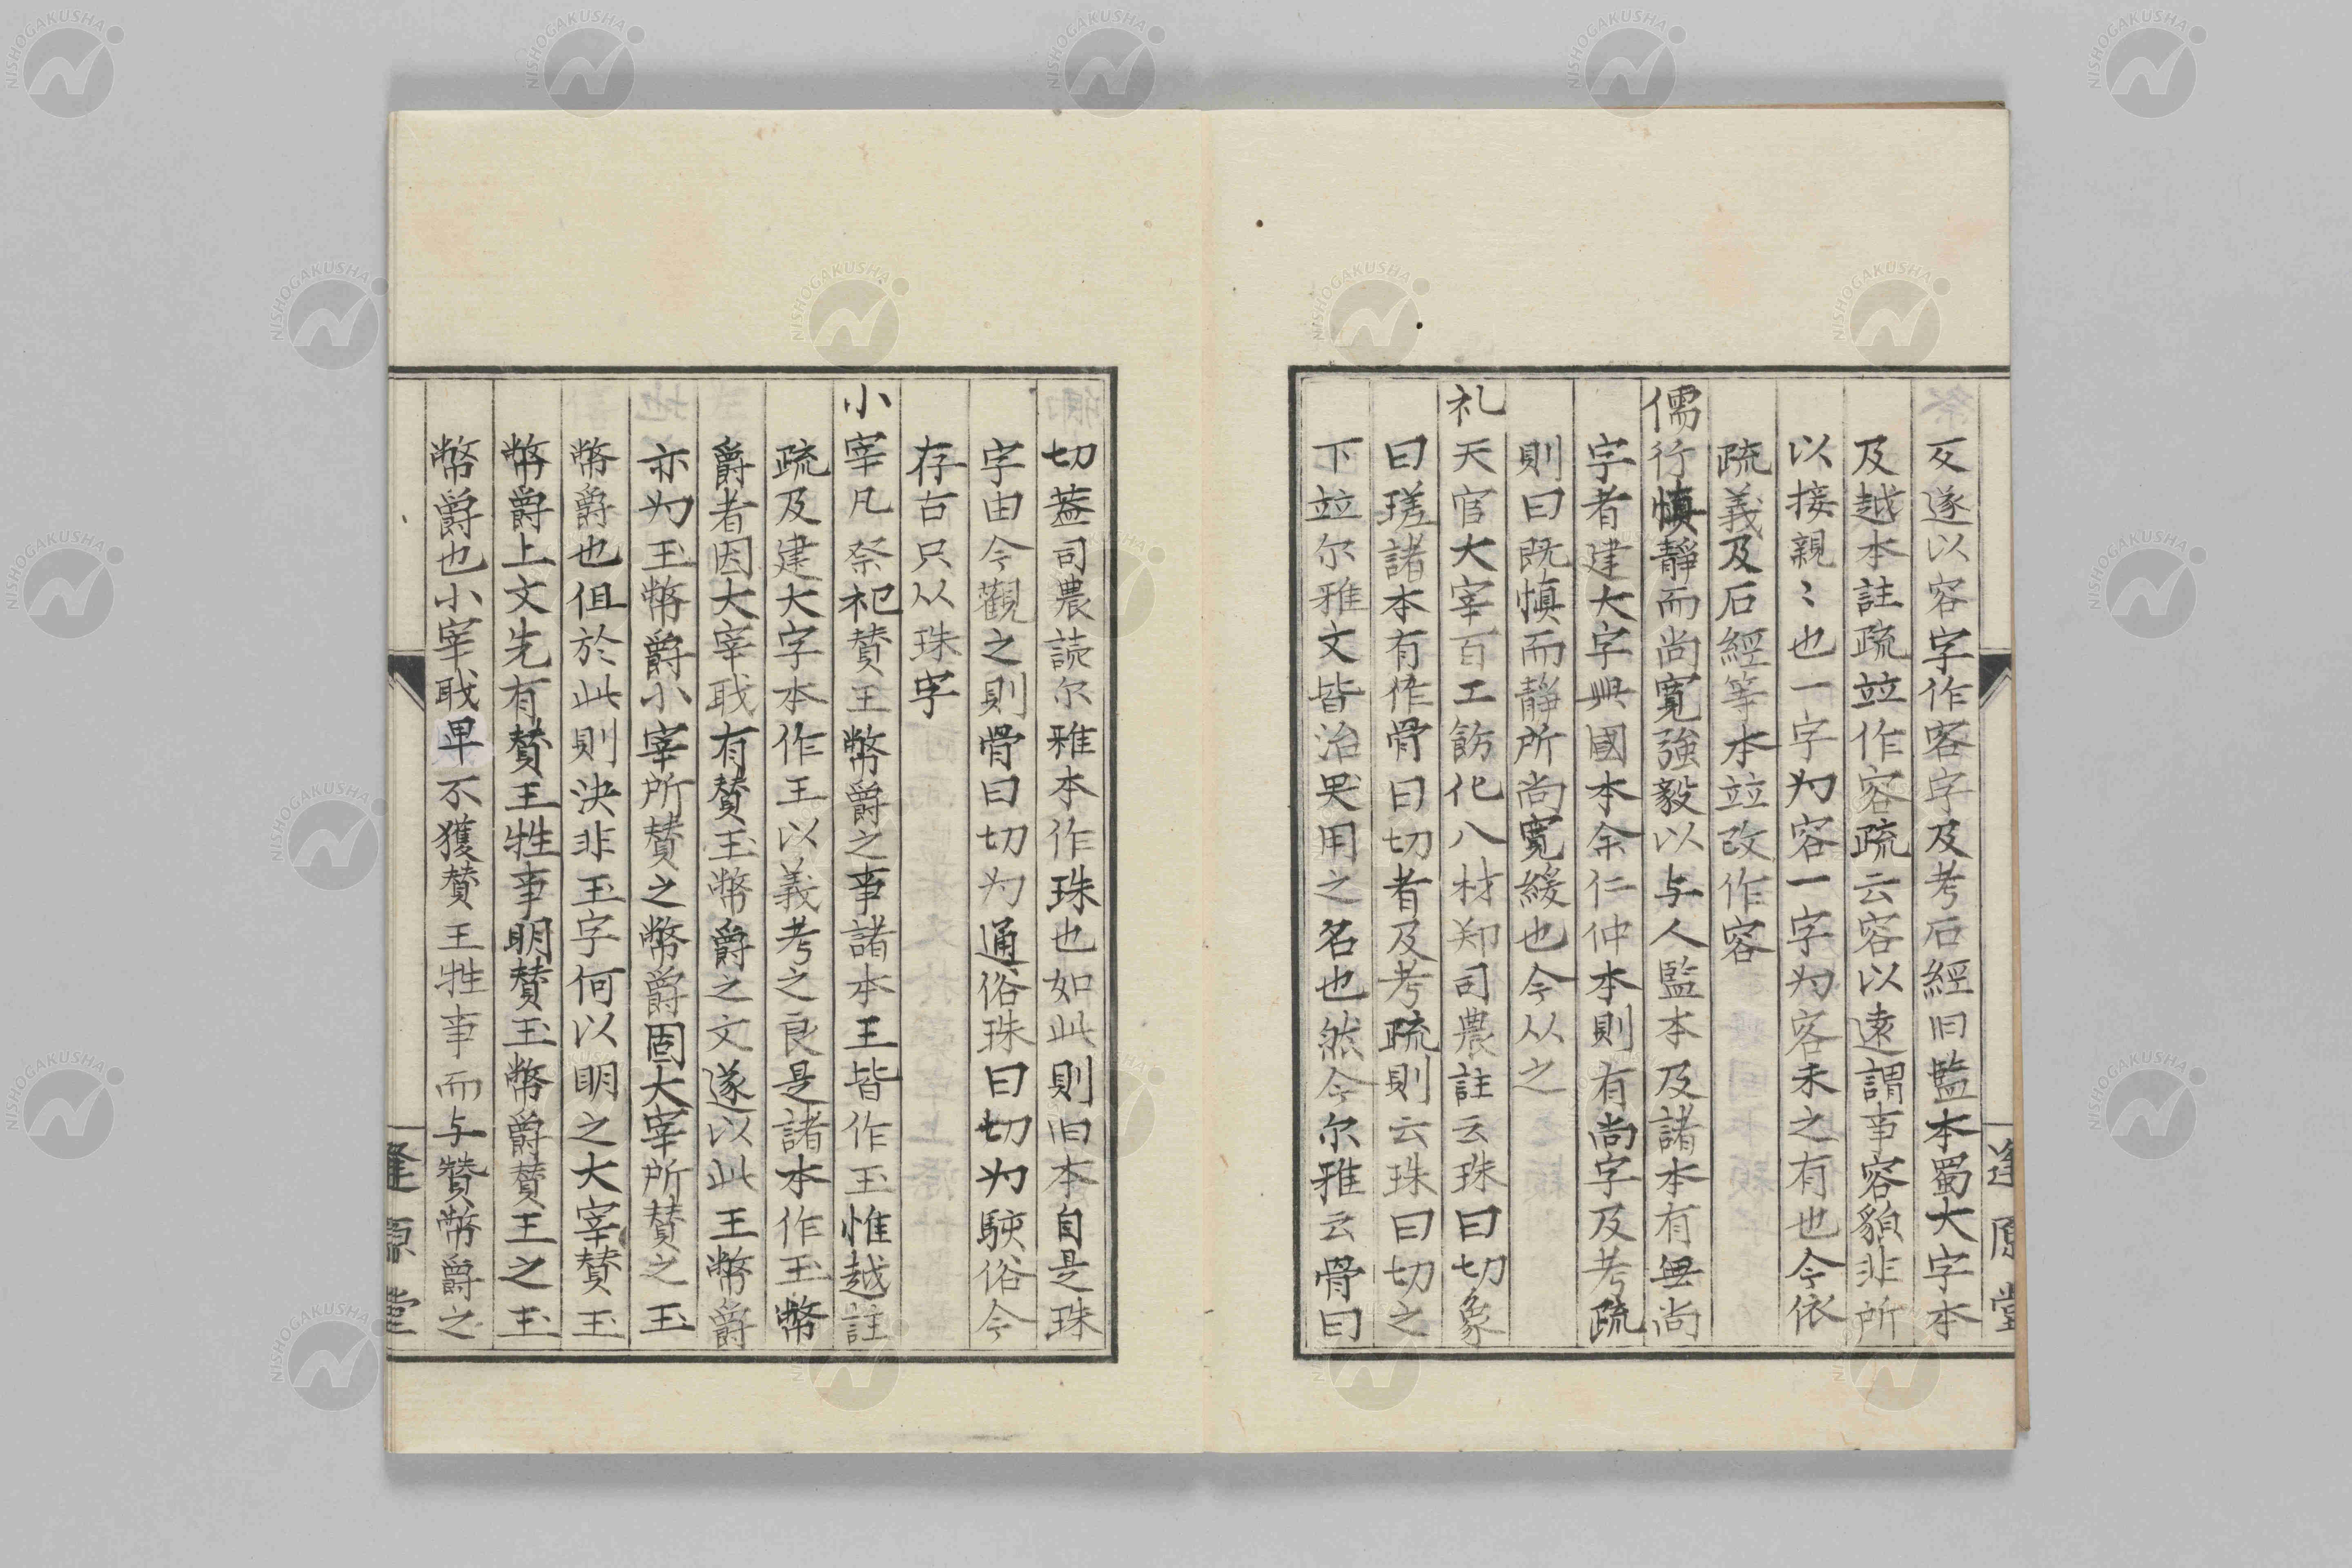 反遂以容字作客字及考石經旧監本蜀大字本
及越本註疏竝作容疏云容以遠謂事容貌非所
以接親〻也一字为容一字为客未之有也今依
疏義及石經等本竝改作容
儒行慎靜而尚寬強毅以与人監本及諸本有無尚
字者建大字興國本余仁仲本則有尚字及考疏
則曰既慎而靜所尚寬緩也今从之
礼天官大宰百工飭化八材郑司農註云珠曰切象
曰瑳諸本有作骨曰切者及考疏則云珠曰切之
下竝尔雅文皆治噐用之名也然今尔雅云骨曰
切葢司農読尔雅本作珠也如此則旧本自是珠
字由今觀之則骨曰切为通俗珠曰切为駭俗今
存古只从珠字
小宰凡祭祀賛王幣爵之事諸本王皆作玉惟越註
疏及建大字本作王以義考之良是諸本作玉幣
爵者因大宰職有賛玉幣爵之文遂以此王幣爵
亦为玉幣爵小宰所賛之幣爵固大宰所賛之玉
幣爵也但於此則決非玉字何以明之大宰賛玉
幣爵上文先有賛王牲事明賛玉幣爵賛王之玉
幣爵也小宰職卑不獲賛王牲事而与賛幣爵之
逢原堂
逢原堂
NISHOGAKUSHA